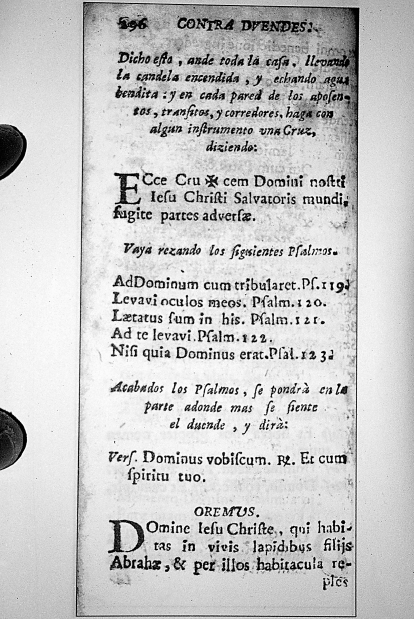 296 CONTRA DVENDES.
Dicho esto, ande toda la casa, llevando
la candela encendida, y echando agua
bendita: y en cada pared de los aposen-
tos, transitos, y corredores, haga con
algun instrumento vna Cruz,
diziendo:
ECce Cru ✠ cem Domini nostri
Iesu Christi Salvatoris mundi,
fugite partes adversæ.
Vaya rezando los siguientes Psalmos.
AdDominum cum tribularet.Ps.119.
Levavi oculos meos. Psalm.120.
Lætatus sum in his. Psalm.121.
Ad te levavi.Psalm.122.
Nisi quia Dominus erat.Psal.123.
Acabados los Psalmos, se pondrà en la
parte adonde mas se siente
el duende, y dirà:
Vers. Dominus vobiscum. ℟. Et cum
spiritu tuo.
OREMVS.
DOmine Iesu Christe, qui habi-
tas in vivis lapidibus filijs
Abrahæ, & per illos habitacula re-
ples